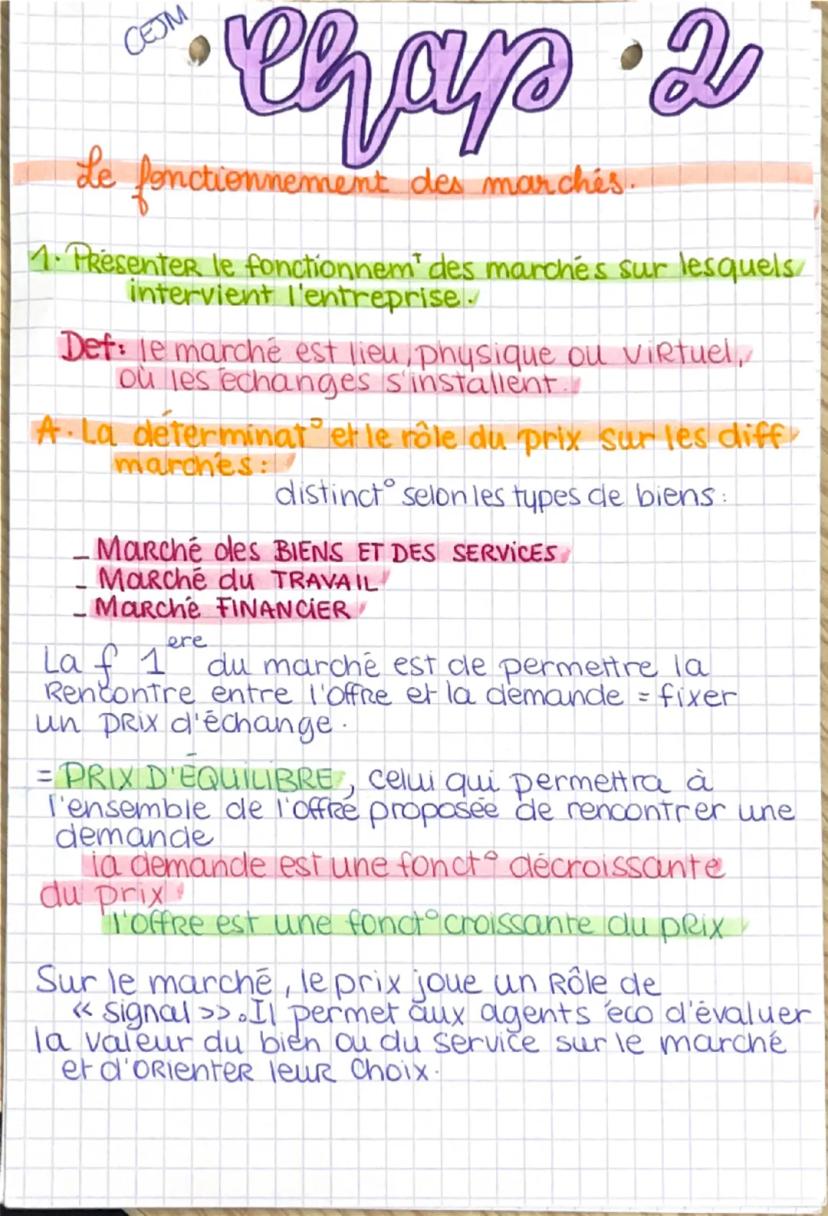 CEJM
Chap 2
Le fonctionnement des marchés.
1. Présenter le fonctionnem^t des marchés sur lesquels
intervient l'entreprise.
Def: le marché est lieu, physique ou virtuel,
où les échanges s'installent.
A. La déterminat° et le rôle du prix sur les diff
marchés:
distinct° selon les types de biens:
- Marché des BIENS ET DES SERVICES
- Marché du TRAVAIL
- Marché FINANCIER
La f 1ere du marché est de permettre la
Rencontre entre l'offre et la demande = fixer
un prix d'échange.
= PRIX D'ÉQUILIBRE, celui qui permettra à
l'ensemble de l'offre proposée de rencontrer une
demande
la demande est une fonct° décroissante
du prix
l'offre est une fonct° croissante du prix
Sur le marché, le prix joue un Rôle de
« signal ». Il permet aux agents éco d'évaluer
la valeur du bien ou du service sur le marché
et d'orienter leur choix.